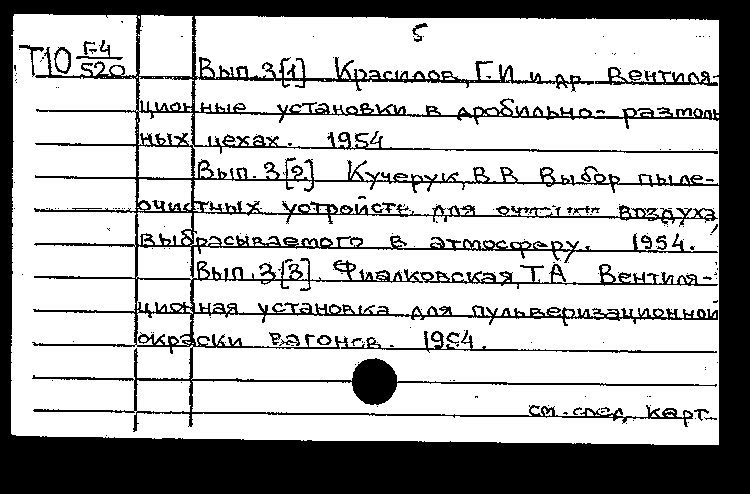 5
Т10 Г-4/520
Вып.3[1] Красилов, Г.И и др. Вентиля-
ционные установки в дробильно-размоль
ных цехах. 1954
Вып.3[2] Кучерук, В.В. Выбор пыле-
очистных устройств для очистки воздуха,
выбрасываемого в атмосферу. 1954.
Вып.3[3]. Фиалковская, Т.А. Вентиля-
ционная установка для пульверизационной
окраски вагонов. 1954.
см. след. карт.